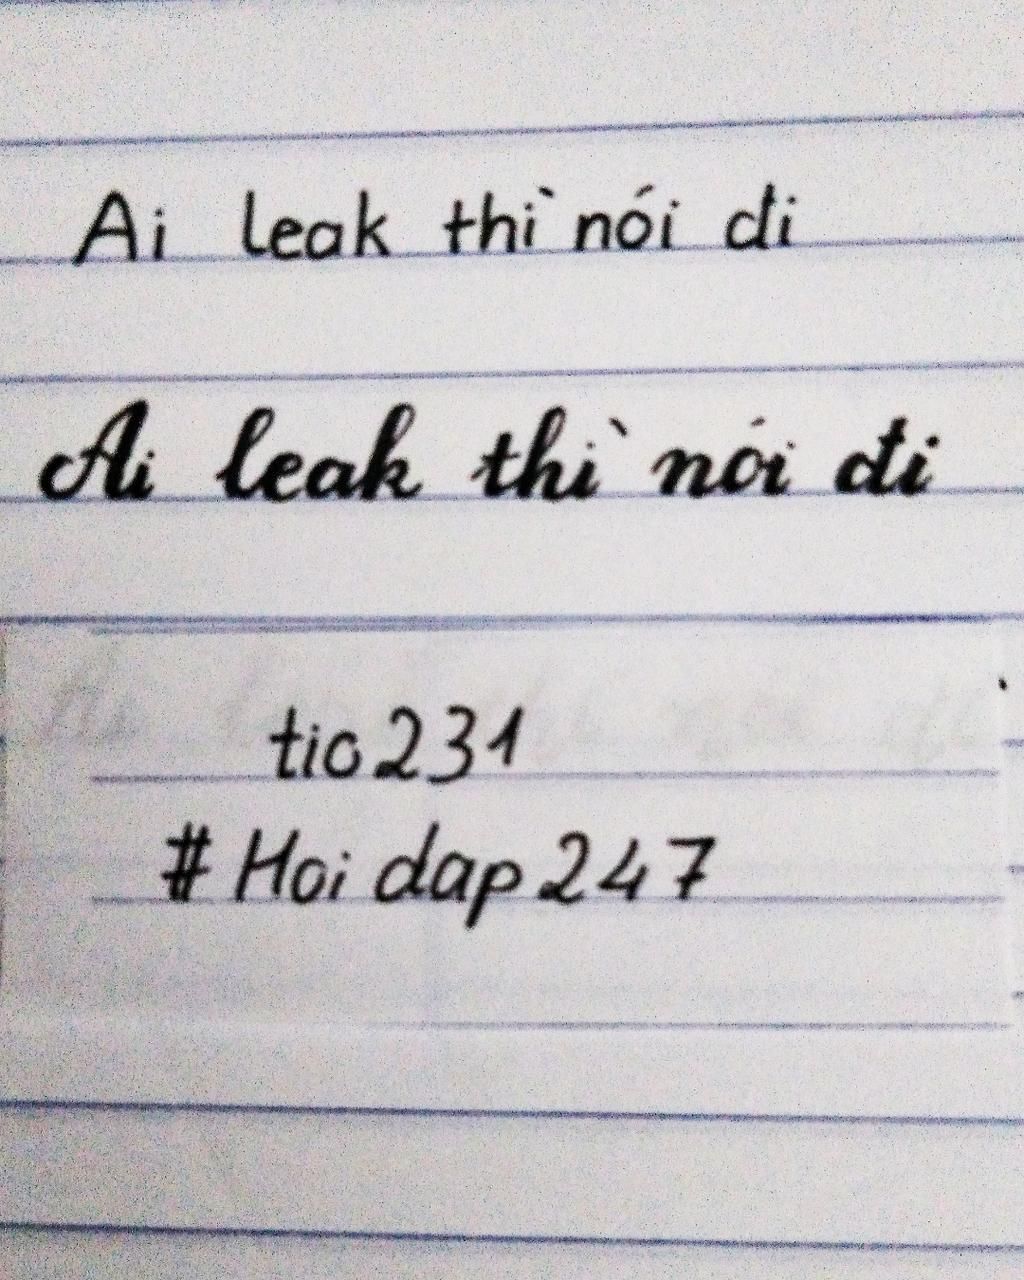 Ai leak thì nói đi
Ai leak thì nói đi
tic231
# Hoi dap 247